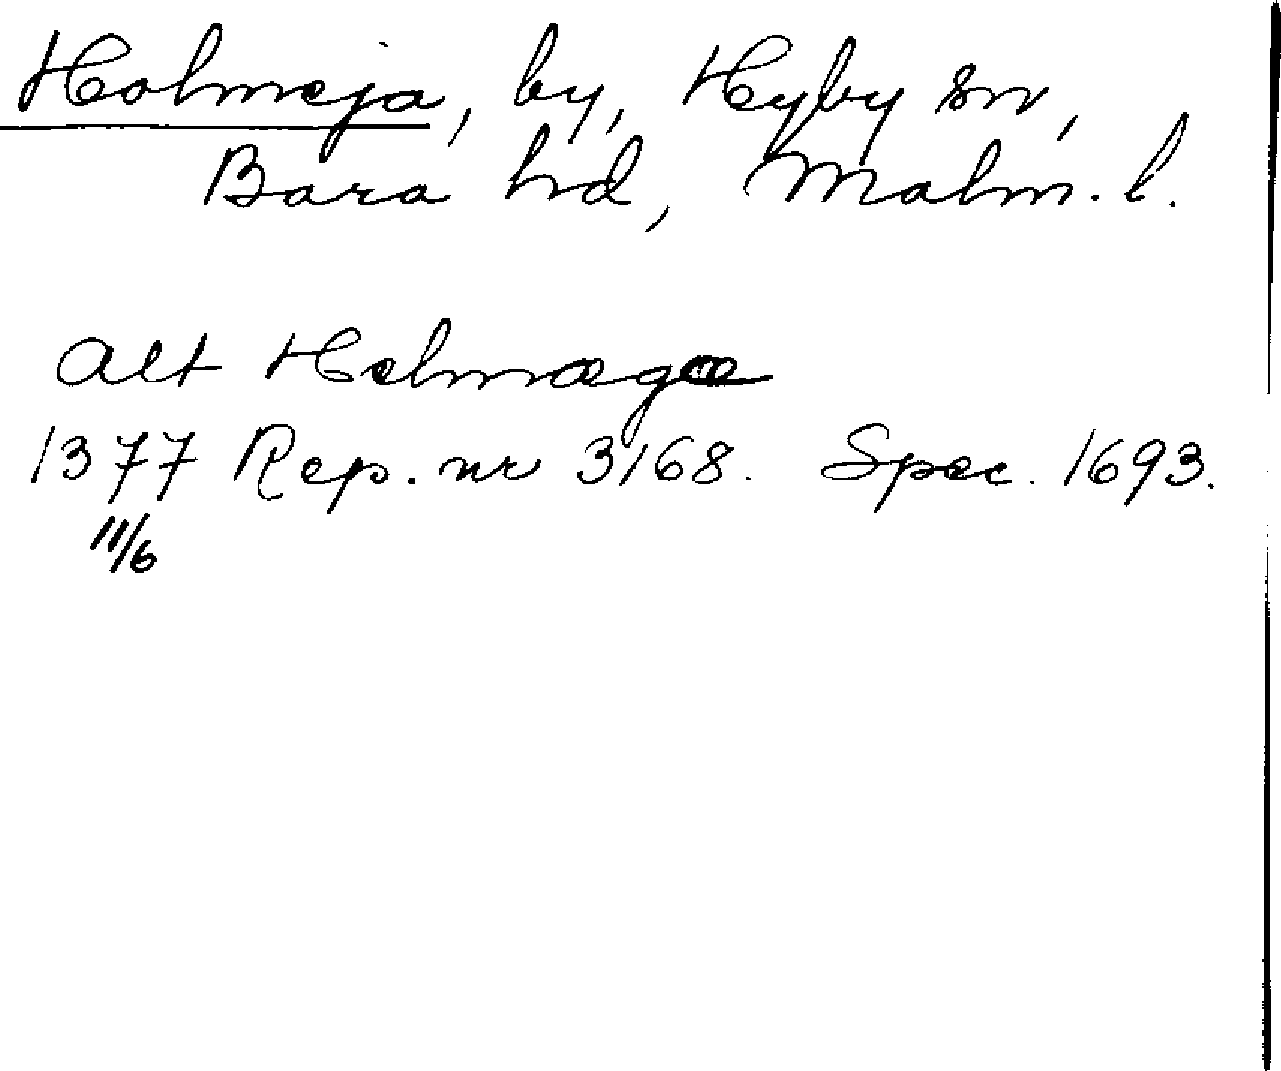 Holmeja, by, Hyby sn,
Bara hd, Malm. l.
alt Helmagæ
1377 Rep. nr 3168. Spec. 1693.
11/6